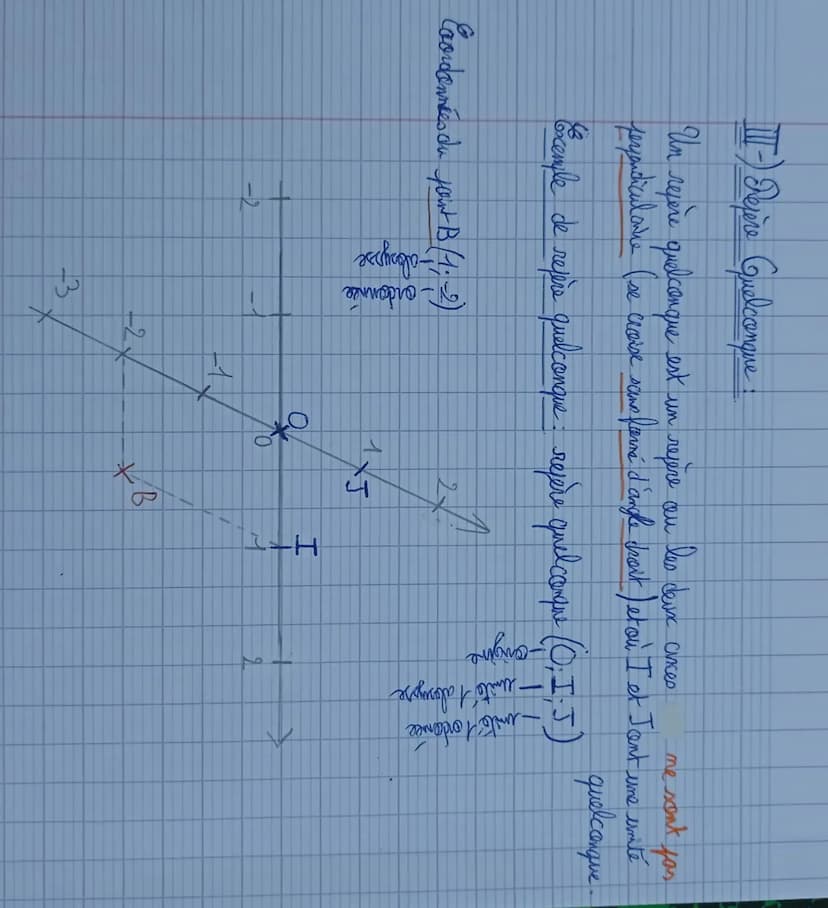 III-) Repère Quelconque:
Un repère quelconque est un repère ou les deux axes ne sont pas
perpendiculaire (se croise sans formé d'angle droit) et où I et J ont une unité
quelconque.
Exemple de repère quelconque: repère quelconque (O; I; J)
origine
unité 1 abscysse
unité 1 ordonnée
Coordonnées du point B (1; -2)
abscysse
ordonnée
2
1
J
O
I
-2
-1
0
1
2
-1
-2
-3
B